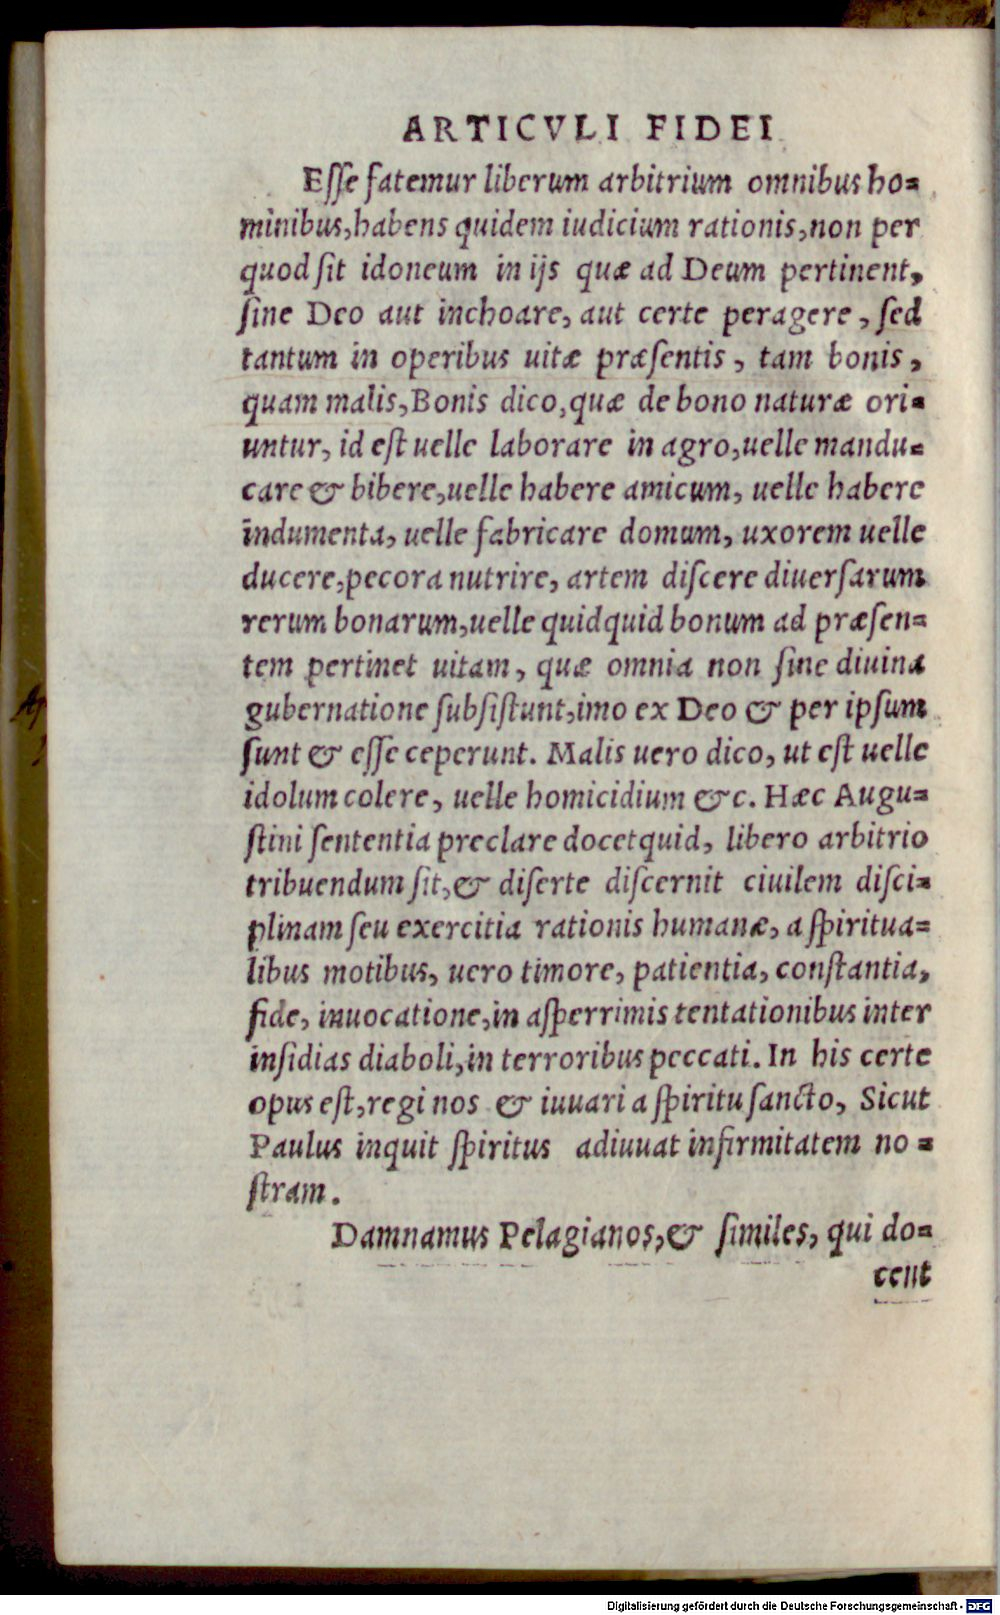 ARTICVLI FIDEI
Eſſe fatemur liberum arbitrium omnibus ho=
minibus, habens quidem iudicium rationis, non per
quod ſit idoneum in ijs quæ ad Deum pertinent,
ſine Deo aut inchoare, aut certe peragere, ſed
tantum in operibus uitæ præſentis, tam bonis,
quam malis, Bonis dico, quæ de bono naturæ ori=
untur, id eſt uelle laborare in agro, uelle mandu=
care & bibere, uelle habere amicum, uelle habere
indumenta, uelle fabricare domum, uxorem uelle
ducere, pecora nutrire, artem diſcere diuerſarum
rerum bonarum, uelle quidquid bonum ad præſen=
tem pertinet uitam, quæ omnia non ſine diuina
gubernatione ſubſiſtunt, imo ex Deo & per ipſum
ſunt & eſſe ceperunt. Malis uero dico, ut eſt uelle
idolum colere, uelle homicidium &c. Hæc Augu=
ſtini ſententia preclare docet quid, libero arbitrio
tribuendum ſit, & diſerte diſcernit ciuilem diſci=
plinam ſeu exercitia rationis humanæ, a ſpiritua=
libus motibus, uero timore, patientia, conſtantia,
fide, inuocatione, in aſperrimis tentationibus inter
inſidias diaboli, in terroribus peccati. In his certe
opus eſt, regi nos & iuuari a ſpiritu ſancto, Sicut
Paulus inquit ſpiritus adiuuat infirmitatem no=
ſtram.
Damnamus Pelagianos, & ſimiles, qui do=
cent
Digitalisierung gefördert durch die Deutsche Forschungsgemeinschaft - DFG